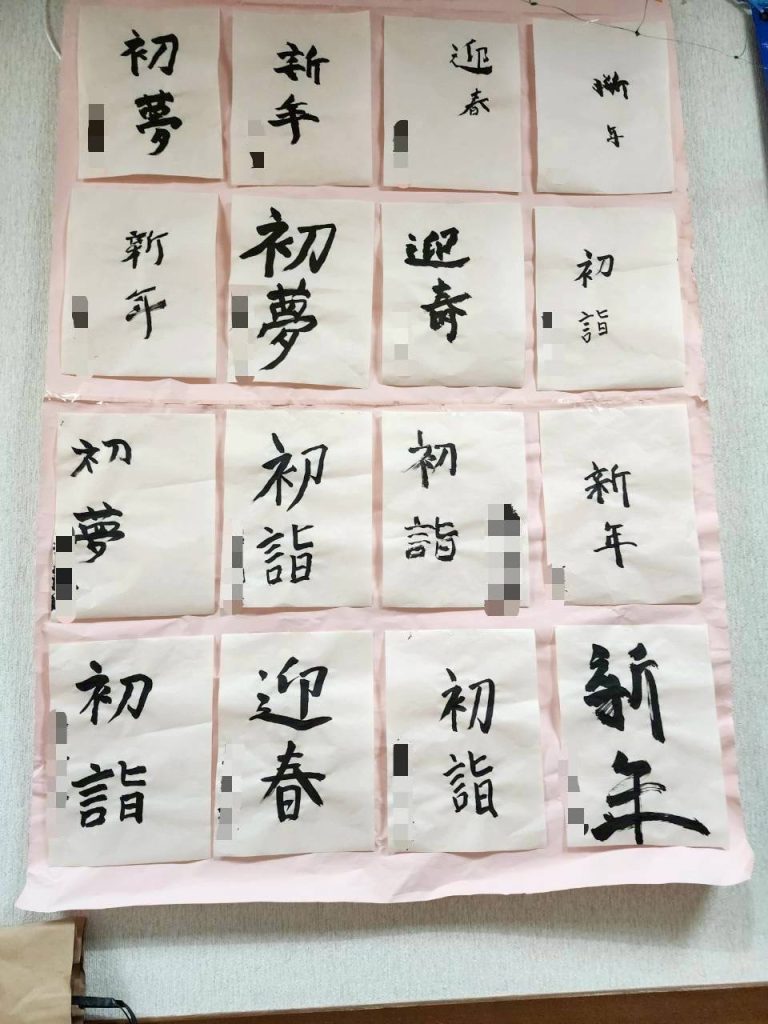 初夢
新年
迎春
新年
新年
初夢
迎奇
初詣
初夢
初詣
初詣
新年
初詣
迎春
初詣
新年